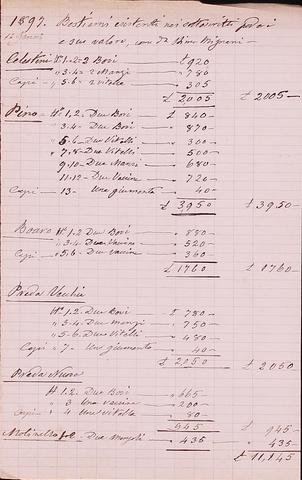 1897. Bestiami esistenti nei sottoscritti poderi
e suo valore, come da stima
Celestini N. 1.2 - 2 Bovi £ 920
" 3.4 - 2 Manzi " 780
Capi " 5.6 - 2 Vitelli " 305
£ 2005 £ 2005 -
Pino - N. 1.2. Due Bovi £ 840 -
" 3.4. Due Bovi " 870 -
" 5.6 - Due Vitelli " 300 -
" 7.8 - Due Vitelli " 500 -
" 9.10 - Due Manzi " 680 -
" 11.12 - Due Vaccine " 720 -
Capi 13 - Una giumenta " 40 -
£ 3950 £ 3950 -
Boaro N. 1.2. Due Bovi " 880 -
" 3.4 - Due Vaccine " 520 -
Capi " 5.6 - Due Vaccine " 360 -
£ 1760 £ 1760
Preda Vecchia
N. 1.2 - Due Bovi £ 780 -
" 3.4 - Due Manzi " 750 -
" 5.6 - Due Vitelli " 480 -
Capi " 7 - Una giumenta " 40 -
£ 2050 £ 2050
Preda Nuova
N. 1.2. Due Bovi " 665
" 3 Una vaccina " 200 -
Capi " 4 Una vitella " 80 -
945 £ 945 -
Molinello - Due Manzoli " 435 " 435 -
£ 11,145